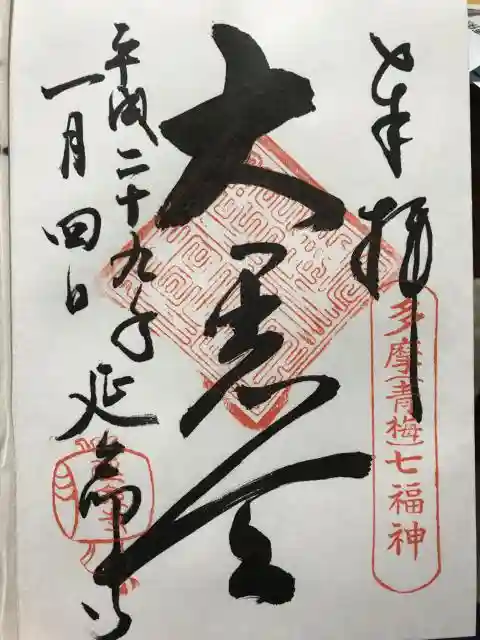 奉拝
多摩(青梅)七福神
大黒天
平成二十九年
一月四日
延命寺